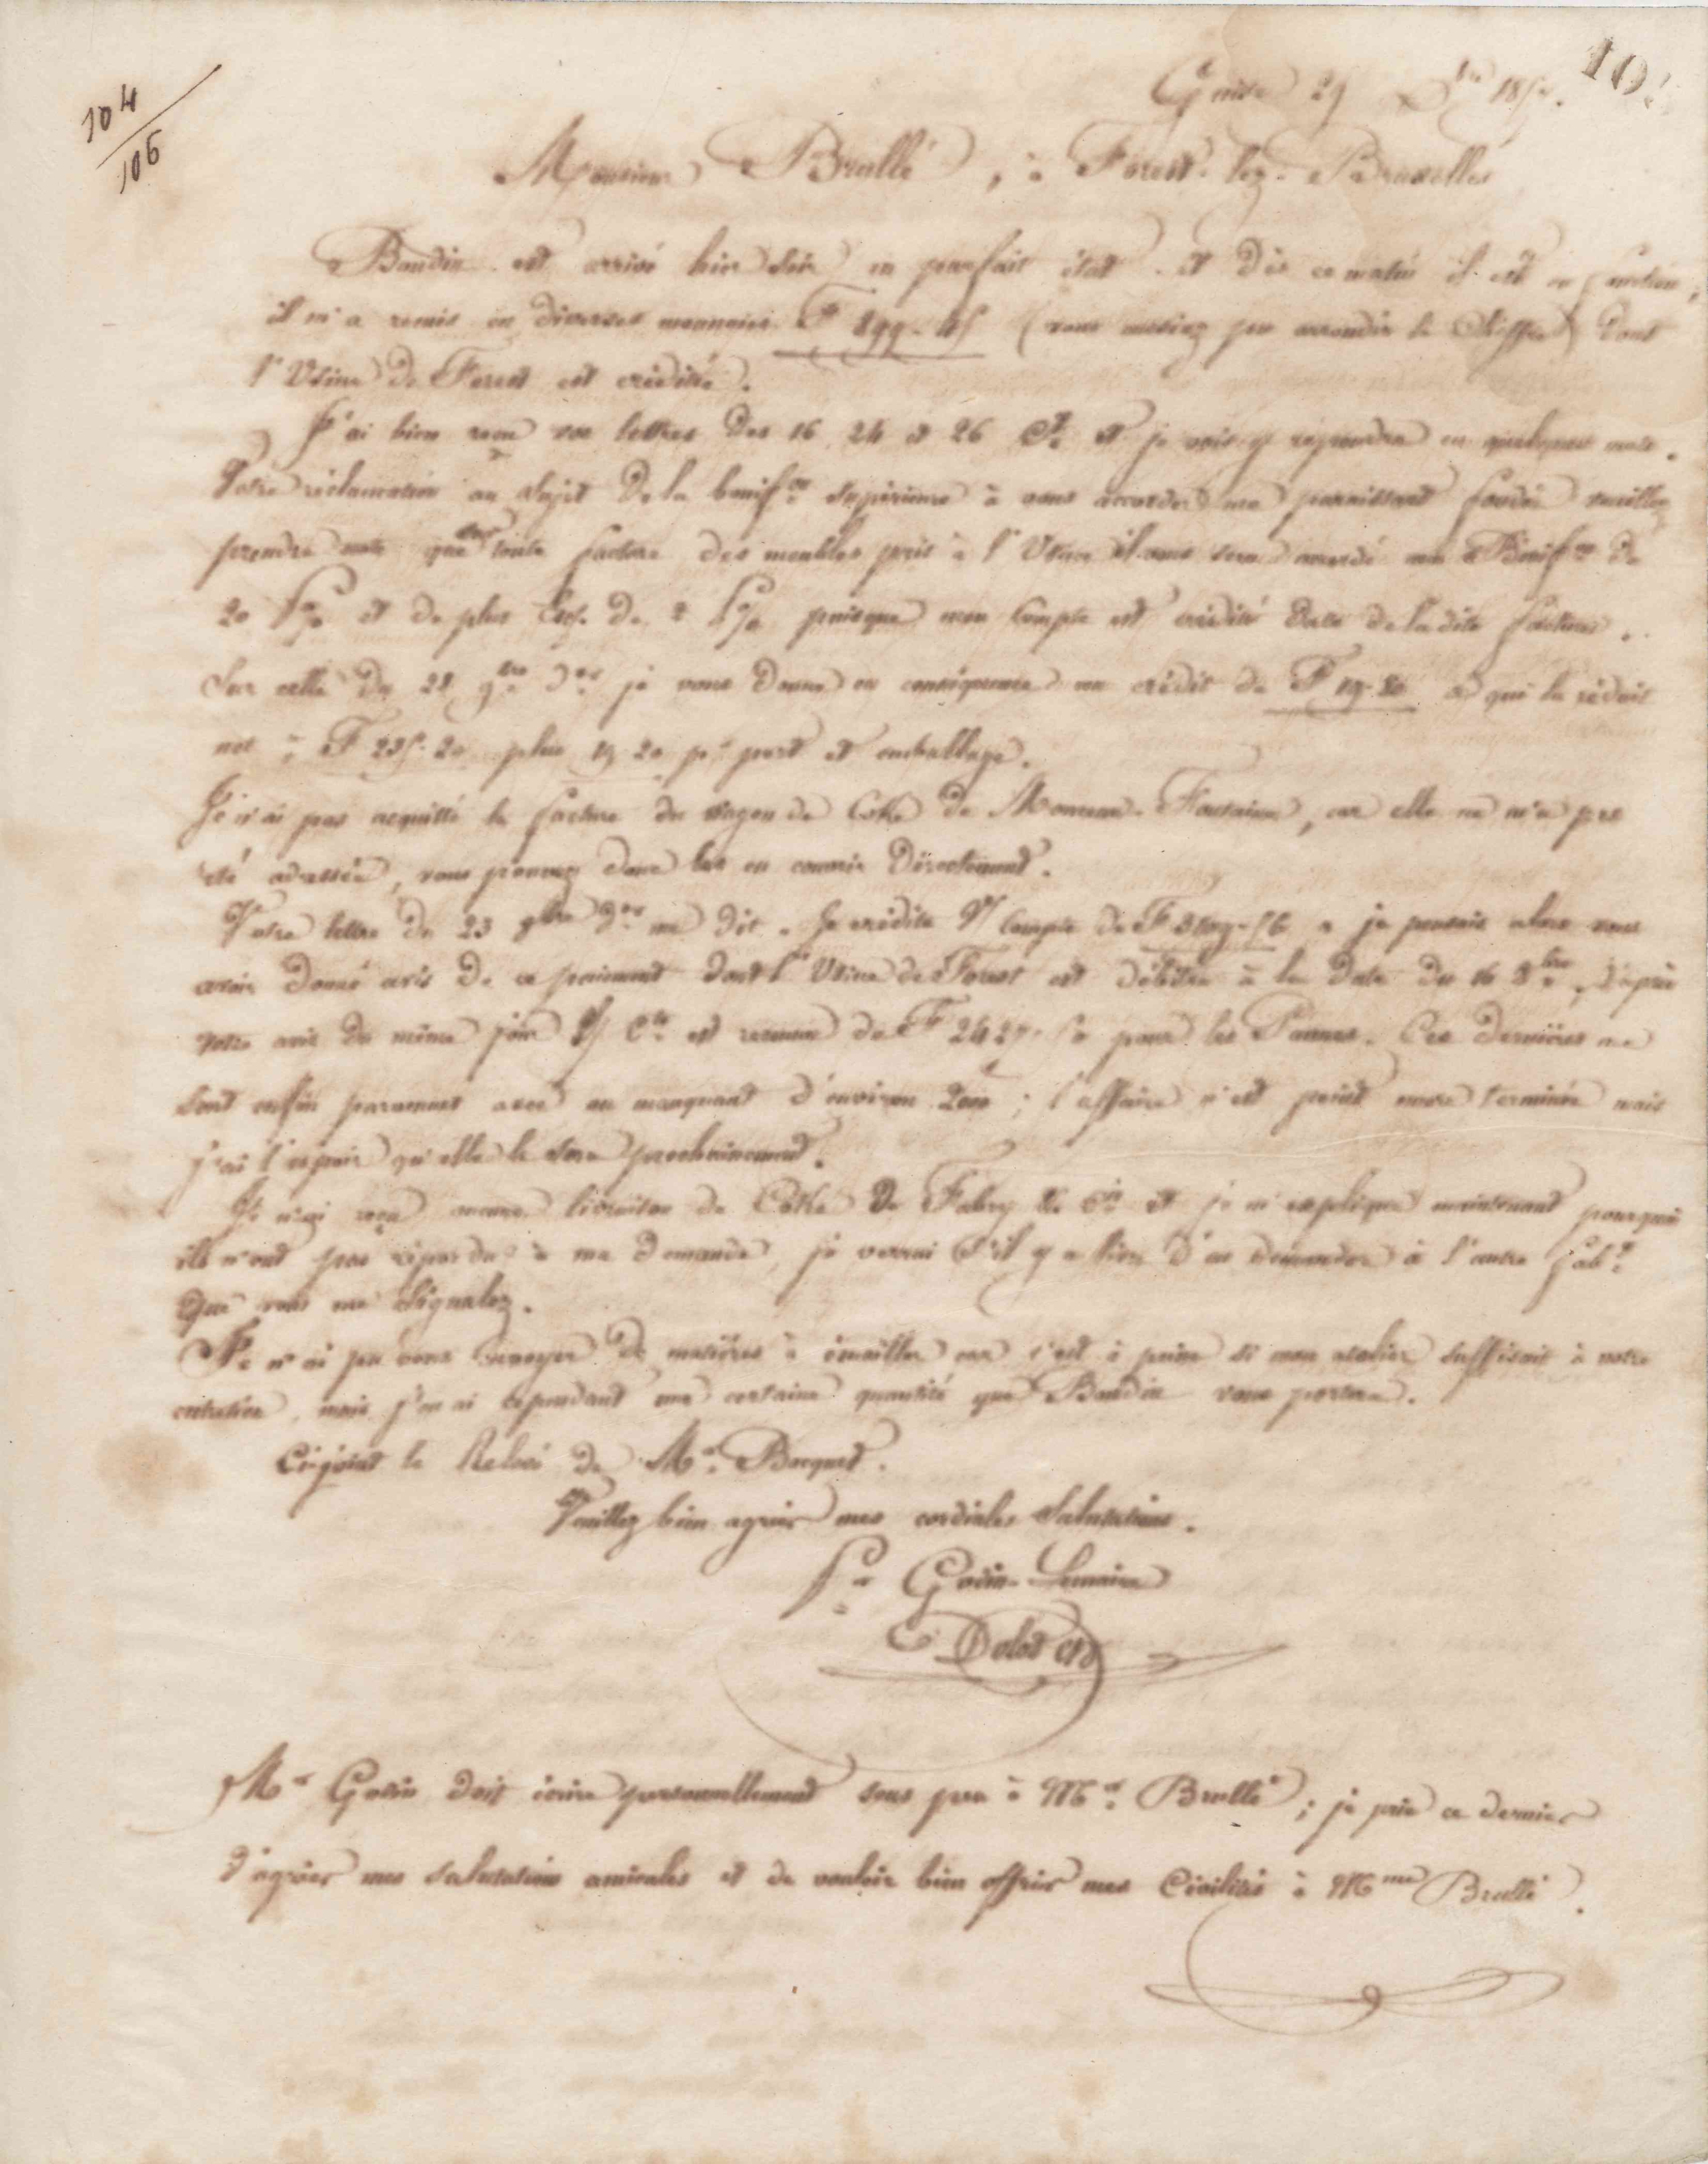 104
106
10
Guise 29 Xbre 185
Monsieur Brullé, à Forest-lez-Bruxelles
Baudin est arrivé hier soir en parfait état et dès ce matin il est en fonction ;
il m'a remis en diverses monnaies F 899-45 (vous auriez pu arrondir le chiffre) dont
l'Usine de Forest est créditée.
J'ai bien reçu vos lettres des 16, 24 et 26 Ct et je vais y répondre en quelques mots.
Votre réclamation au sujet de la bonifon supérieure à vous accorder me paraissant fondée veuillez
prendre note que sur toute facture des meubles pris à l'Usine il vous sera accordé une Bonifon de
20 p% et de plus Esc. de 2 p% puisque mon Compte est crédité date de la dite facture.
Sur celle du 28 9bre dr je vous donne en conséquence un crédit de F 19-20 ce qui la réduit
net à F 235-20 plus 19-20 pr port et emballage.
Je n'ai pas acquitté la facture du wagon de Coke de Monceau-Fontaine, car elle ne m'a pas
été adressée, vous pouvez donc les en couvrir directement.
Votre lettre du 23 8bre dr me dit "Je crédite Vt Compte de F -56" je pensais alors vous
avoir donné avis de ce paiement dont l'Usine de Forest est débitée à la date du 16 8bre, d'après
votre avis du même jour et remise de F 2427-50 pour les Pannes. Ces dernières me
sont enfin parvenues avec un manquant d'environ 2000 ; l'affaire n'est point encore terminée mais
j'ai l'espoir qu'elle le sera prochainement.
Je n'ai reçu aucune livraison de Coke de Fabry & Cie et je m'explique maintenant pourquoi
ils n'ont pas répondu à ma demande, je verrai s'il y a lieu d'en demander à l'autre fabt
que vous me signalez.
Je n'ai pu vous envoyer de matières à émailler car c'est à peine si mon atelier suffisait à notre
entretien, mais j'en ai cependant une certaine quantité que Baudin vous portera.
Ci-joint le Relevé de Mr Bacquet.
Veuillez bien agréer mes cordiales Salutations.
Pr Godin-Lemaire
Mr Godin doit écrire personnellement sous peu à Mr Brullé ; je prie ce dernier
d'agréer mes salutations amicales et de vouloir bien offrir mes Civilités à Mme Brullé.